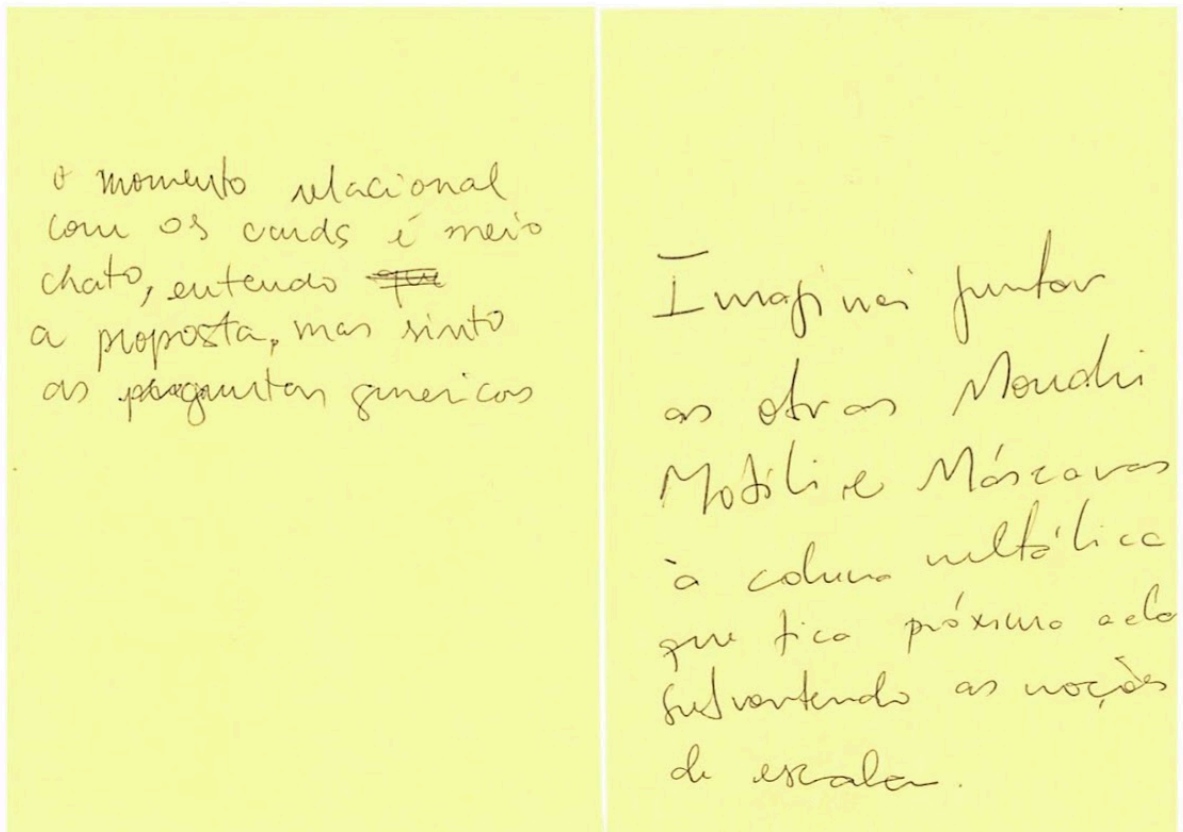 o momento relacional
com os cards é meio
chato, entendo que
a proposta, mas sinto
as perguntas genericas
Imaginei juntar
as obras Mondri
Motili e Máscaras
à coluna metálica
que fica próximo
subvertendo as noções
de escala.